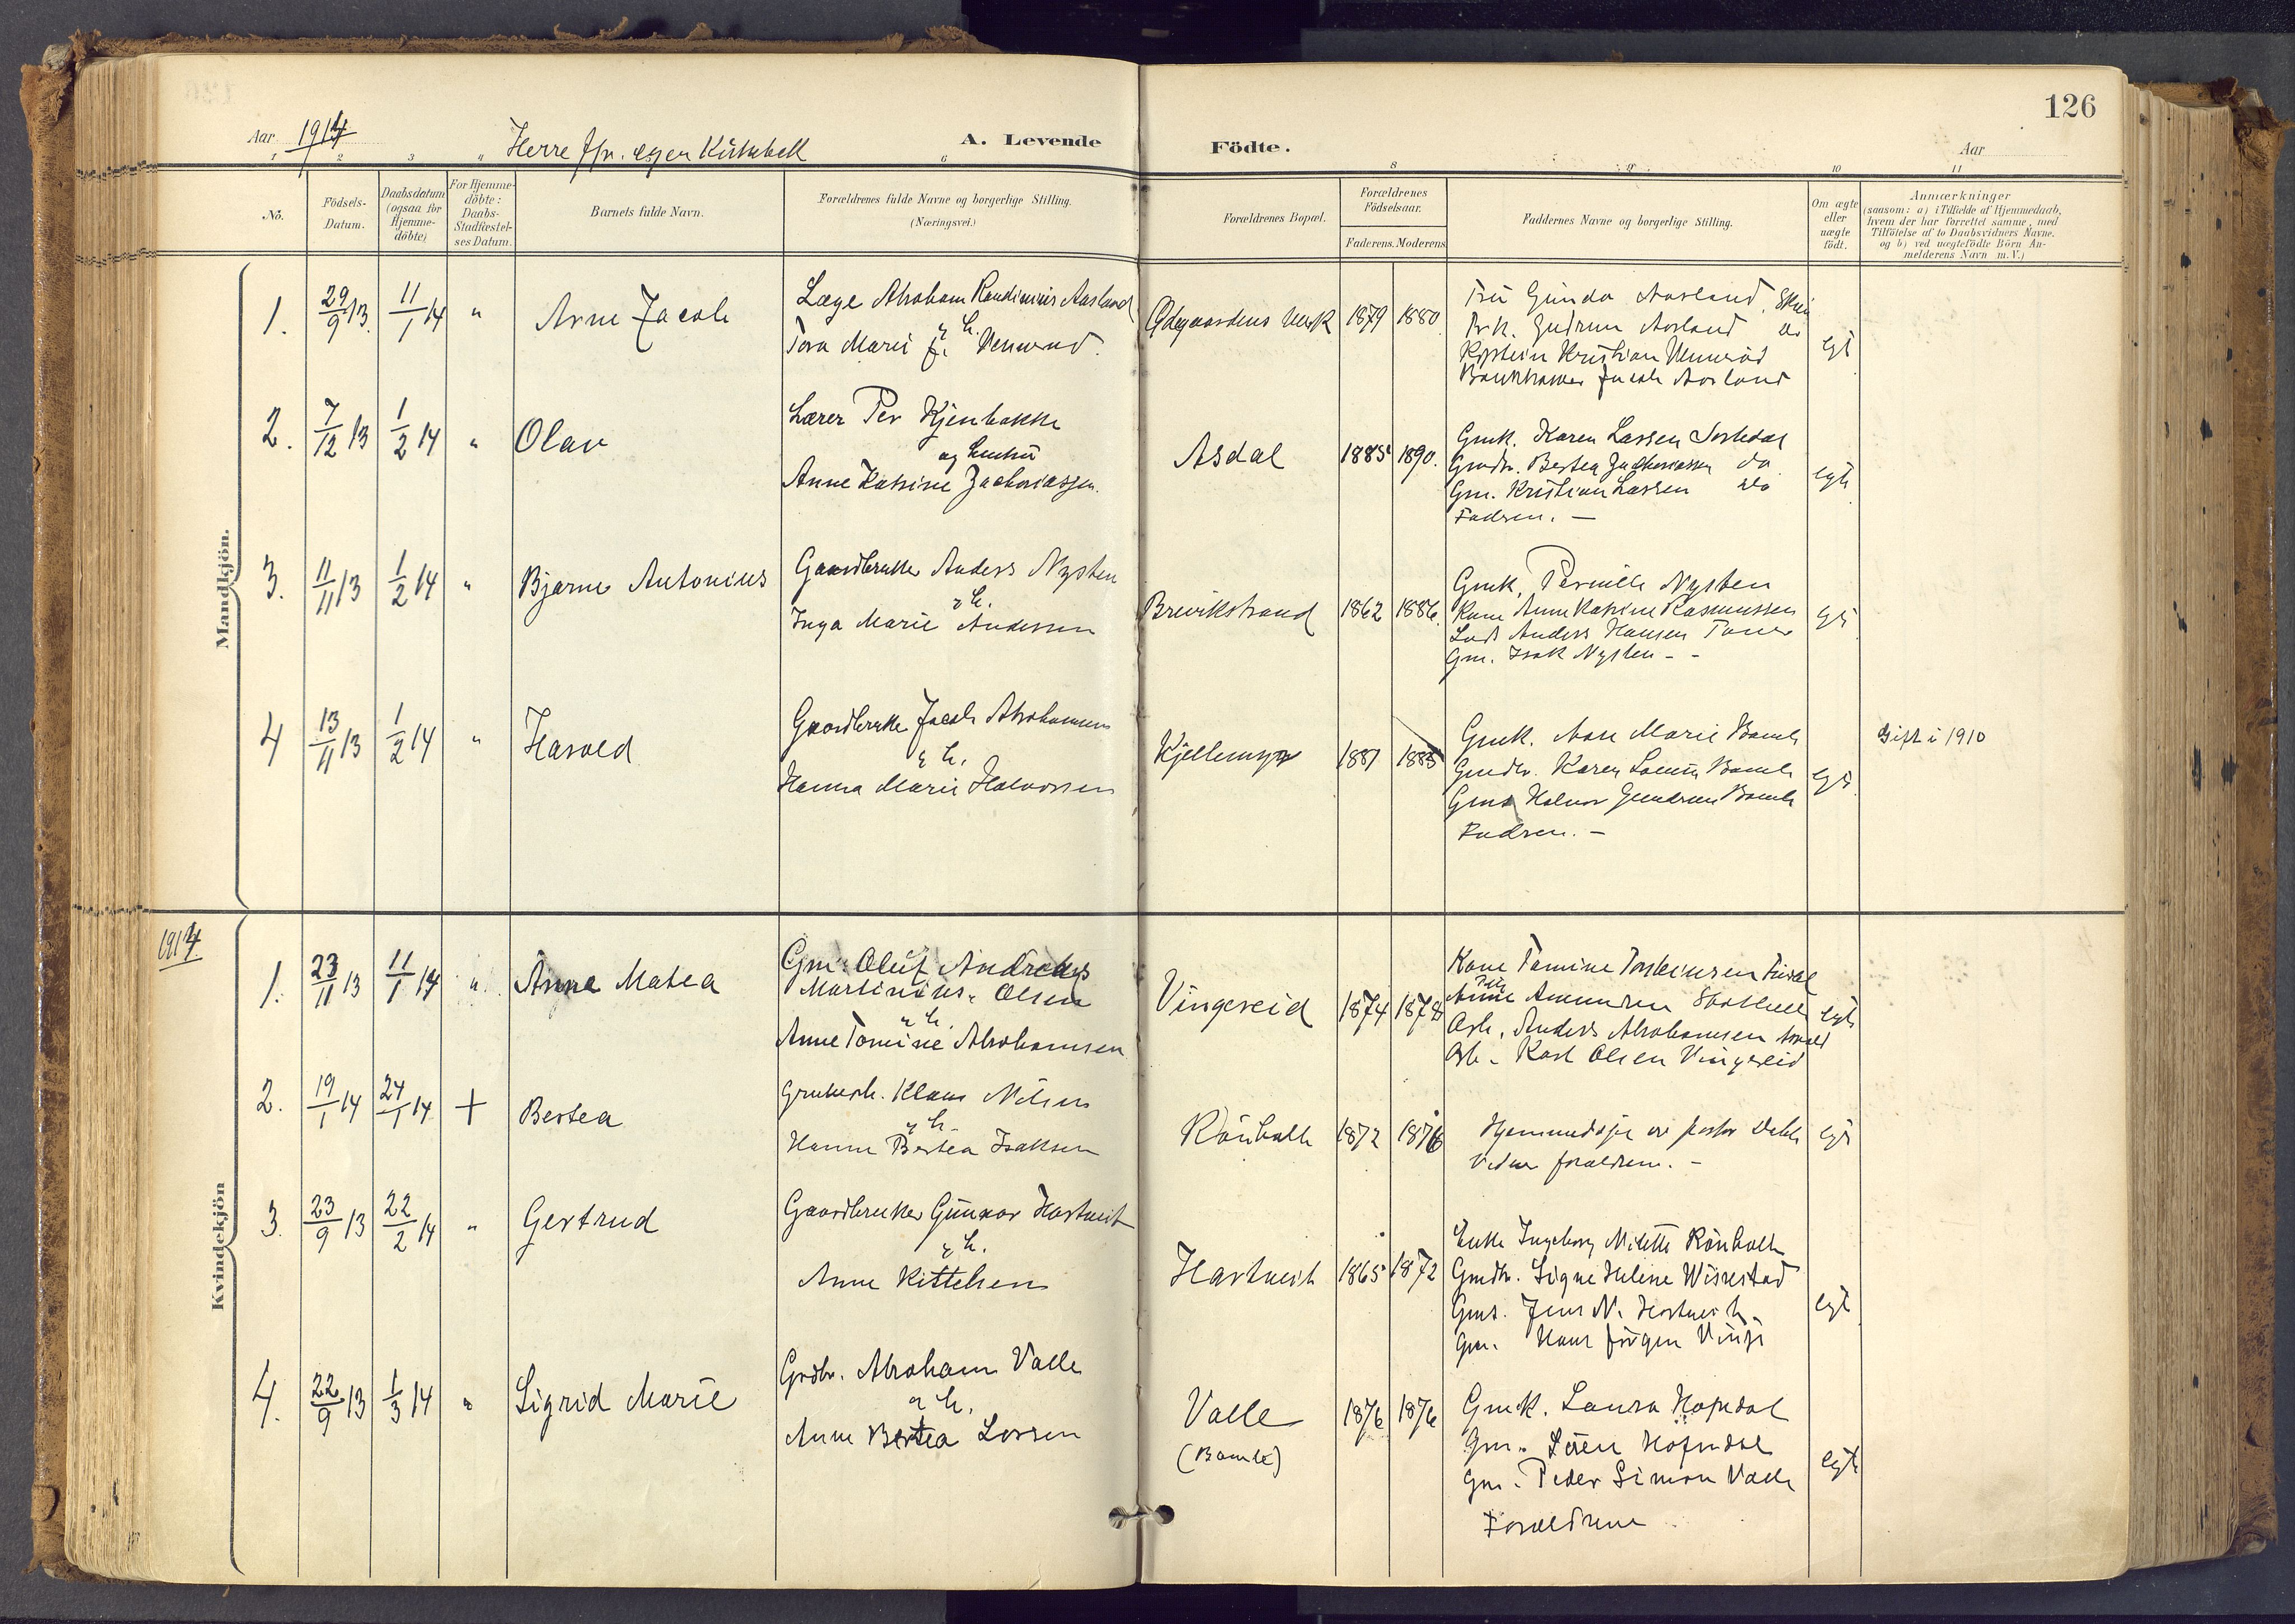 126
Aar 1914
Herre
A. Levende Födte.
Aar
1 2 3 4 6 8 9 10 11
No.
Födsels-Datum.
Daabsdatum (ogsaa for Hjemme-döbte)
For Hjemme-döbte: Daabs-Stadfæstel-ses Datum.
Barnets fulde Navn.
Forældrenes fulde Navne og borgerlige Stilling.
(Næringsvei.)
Forældrenes Bopæl.
Forældrenes Födselsaar.
Faderens. Moderens
Faddernes Navne og borgerlige Stilling.
Om ægte eller uægte födt.
Anmærkninger
(saasom: a) i Tilfælde af Hjemmedaab,
hvem der har forrettet samme, med
Tilföielse af to Daabsvidners Navne.
og b) ved uægtefödte Börn An-
melderens Navn m. V.)
Mandkjön.
1. 29/9 13. 11/1 14 " Arne Jacob
Læge Abraham Aasland
Tora Marie f.
Ødegaardens Verk 1879 1880
Fru Gunda Aasland
Frk. Gudrun Aasland
Kristian
Jacob Aasland
egt
2. 7/12 13 1/2 14 " Olav
Lærer Per Kjenbakke
og hustru
Anne Katrine Zachariassen.
Asdal 1885 1890.
Gmk. Karen Larsen
Gmdtr. Bertea Zachariassen do
Gm. Kristian Larsen do
Fadren. -
egte
3. 11/11 13 1/2 14 " Bjarne Antonius
Gaardbruker Anders Nysten
& h.
Inga Marie Andersen
Brevikstrand 1862 1886.
Gmk. Pernille Nysten
Kone Anne Katrine Rasmussen
Anders Hansen
Gm. Isak Nysten - -
egt
4 13/11 13 1/2 14 " Harald
Gaardbruker Jacob Abrahamsen
& h.
Hanna Marie Halvorsen
Kjellemyr 1881 1885
Gmk. Marie Bamle
Gmdtr. Karen Bamle
Gms Halvor Gundersen Bamle
Fadren. -
egt.
Gift i 1910
1914
Kvindekjön
1. 23/11 13 11/1 14 " Anna Matea
Gm. Oluf Andreas
Martinius Olsen
& h.
Anne Tomine Abrahamsen
Vingereid 1874 1878
Kone Tomine
Pike
Arb. Anders Abrahamsen
Arb. Karl Olsen Vingereid
egte
2. 19/1 14 24/1 14 + Bertea
Klaus Nilsen
& h.
Hanne Bertea Isaksen
Rönholt 1872 1876
Hjemmedöpt av pastor
Vidner forældrene. -
egt
3. 23/9 13 22/2 14 " Gertrud
Gaardbruker Gunnar Hartveit
& h.
Anne Kittelsen
Hartveit 1865 1872
Enke Ingeborg Rönholt
Gmdtr. Signe Helene
Gms. Jens N. Hartveit
Gm. Hans Jörgen
egt
4. 22/9 13 1/3 14 " Sigrid Marie
Grdbr. Abraham Valle
& h.
Anne Bertea Larsen
Valle
(Bamle)
1876 1876
Gmk. Laura
Gm. Sören
Gm. Peder Simon Valle
Forældrene
egte